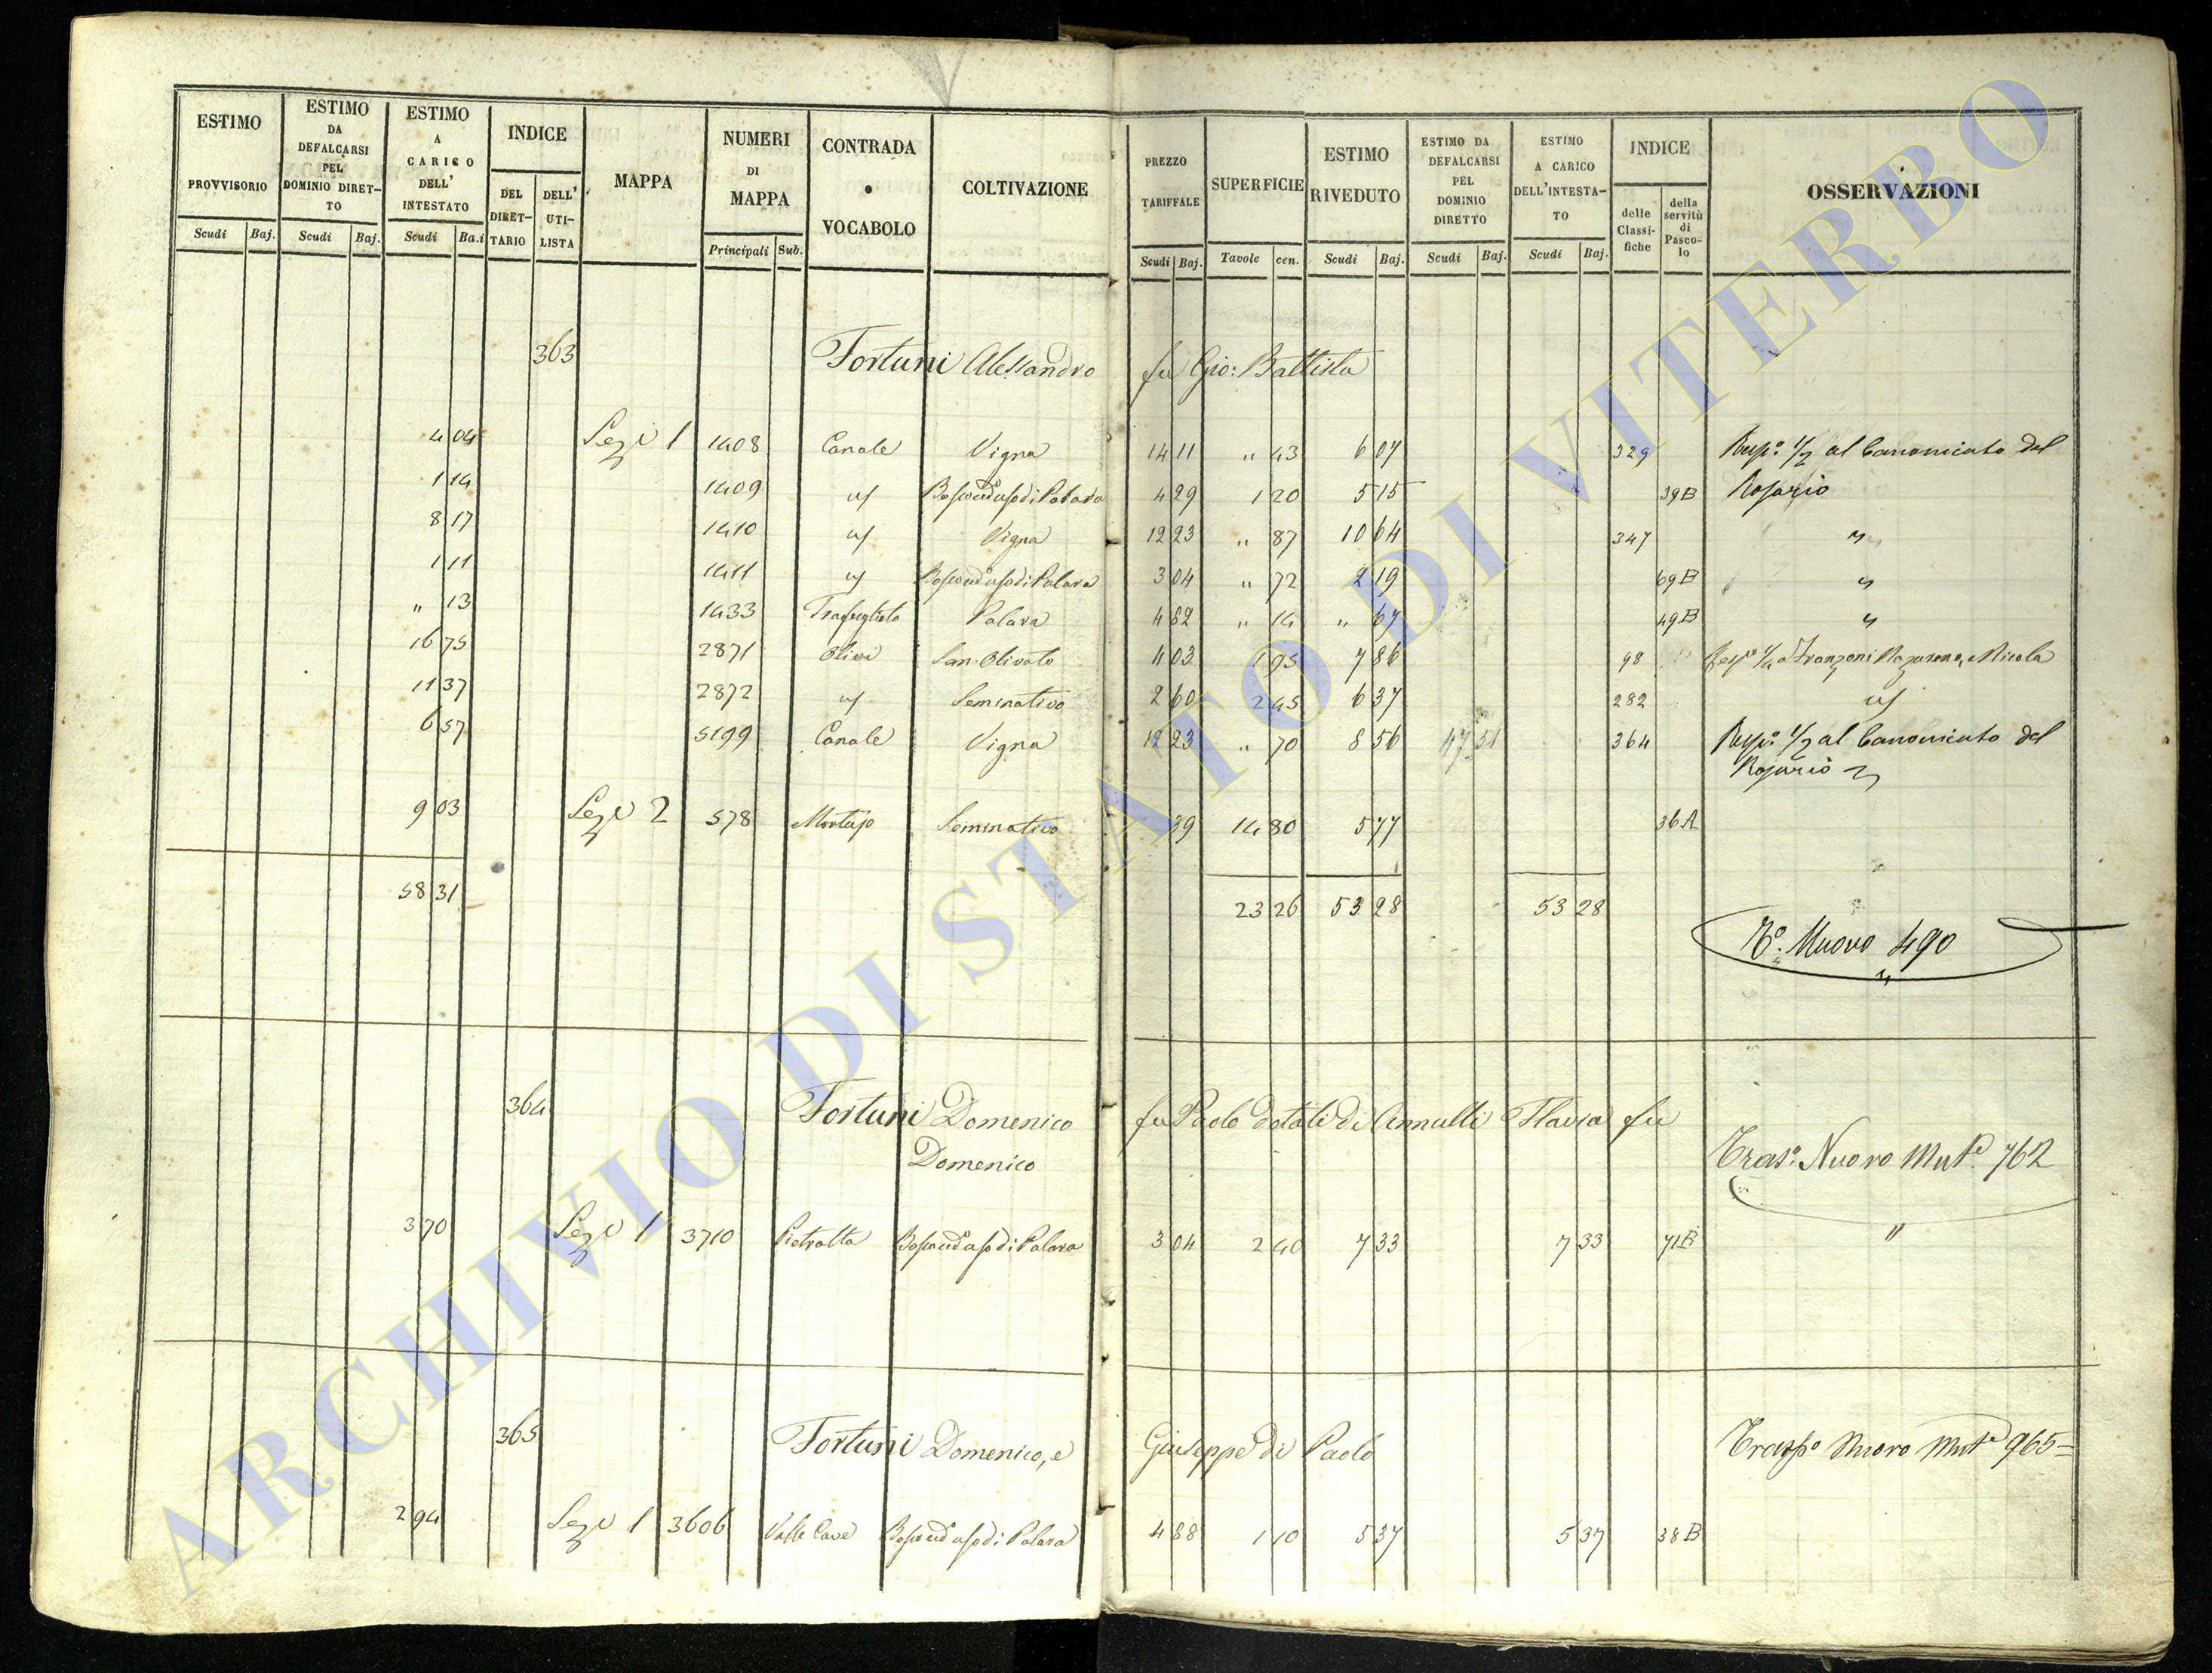 ESTIMO PROVVISORIO
ESTIMO DA DEFALCARSI PEL DOMINIO DIRET-TO
ESTIMO A CARICO DELL' INTESTATO
INDICE
DEL DIRET-TARIO
DELL' UTI-LISTA
MAPPA
NUMERI DI MAPPA
CONTRADA
•
VOCABOLO
COLTIVAZIONE
PREZZO TARIFFALE
SUPERFICIE
ESTIMO RIVEDUTO
ESTIMO DA DEFALCARSI PEL DOMINIO DIRETTO
ESTIMO A CARICO DELL'INTESTA-TO
INDICE
delle Classi-fiche
della servitù di Pasco-lo
OSSERVAZIONI
Scudi Baj. Scudi Baj. Scudi Ba.i Principali Sub. Scudi Baj. Tavole cen. Scudi Baj. Scudi Baj. Scudi Baj.
363 Fortuni Alessandro fu Gio: Battista
4 04 Sez.e 1 1408 Canale Vigna 14 11 " 43 6 07 329 Risp.o 1/2 al Canonicato del
1 14 1409 4 29 1 20 5 15 39B Rosario
8 17 1410 Vigna 12 23 " 87 10 64 347 "
1 11 1411 3 04 " 72 2 19 69B "
" 13 1433 Palara 4 82 " 14 " 67 49B "
16 75 2871 Olivi Sem. Olivato 4 03 1 95 7 86 98 Nicola
11 37 2872 Seminativo 2 60 2 45 6 37 282
6 57 5199 Canale Vigna 12 23 " 70 8 56 47 51 364 Risp.o 1/2 al Canonicato del
Rosario
9 03 Sez.e 2 578 Seminativo 39 14 80 5 77 36A
58 31 23 26 53 28 53 28
T.o Nuovo 490
364 Fortuni Domenico fu Paolo dotali di Annulli Flavia fu
Domenico
Tras.o Nuovo Mut.e 762
3 70 Sez.e 1 3710 Pietralta 3 04 2 40 7 33 7 33 71B "
365 Fortuni Domenico, e Giuseppe di Paolo Trasp.o Nuovo Mut.e 965=
2 94 Sez.e 1 3606 Valle Cave 4 88 1 10 5 37 5 37 38B
ARCHIVIO DI STATO DI VITERBO